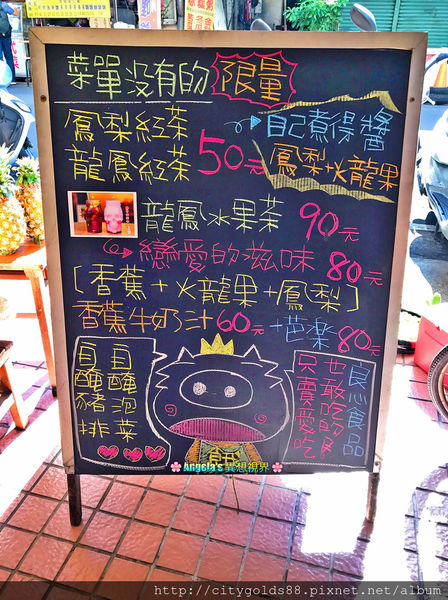 菜單沒有的 限量
鳳梨紅茶
龍鳳紅茶 50元
自己煮得醬
鳳梨+火龍果
龍鳳水果茶 90元
戀愛的滋味 80元
[香蕉+火龍果+鳳梨]
香蕉牛奶汁 60元 +芭樂 80元
自醃豬排
自醃泡菜
良心食品
也敢吃的
只賣愛吃
Angela's 異想視界
http://citygolds88.pixnet.net/album